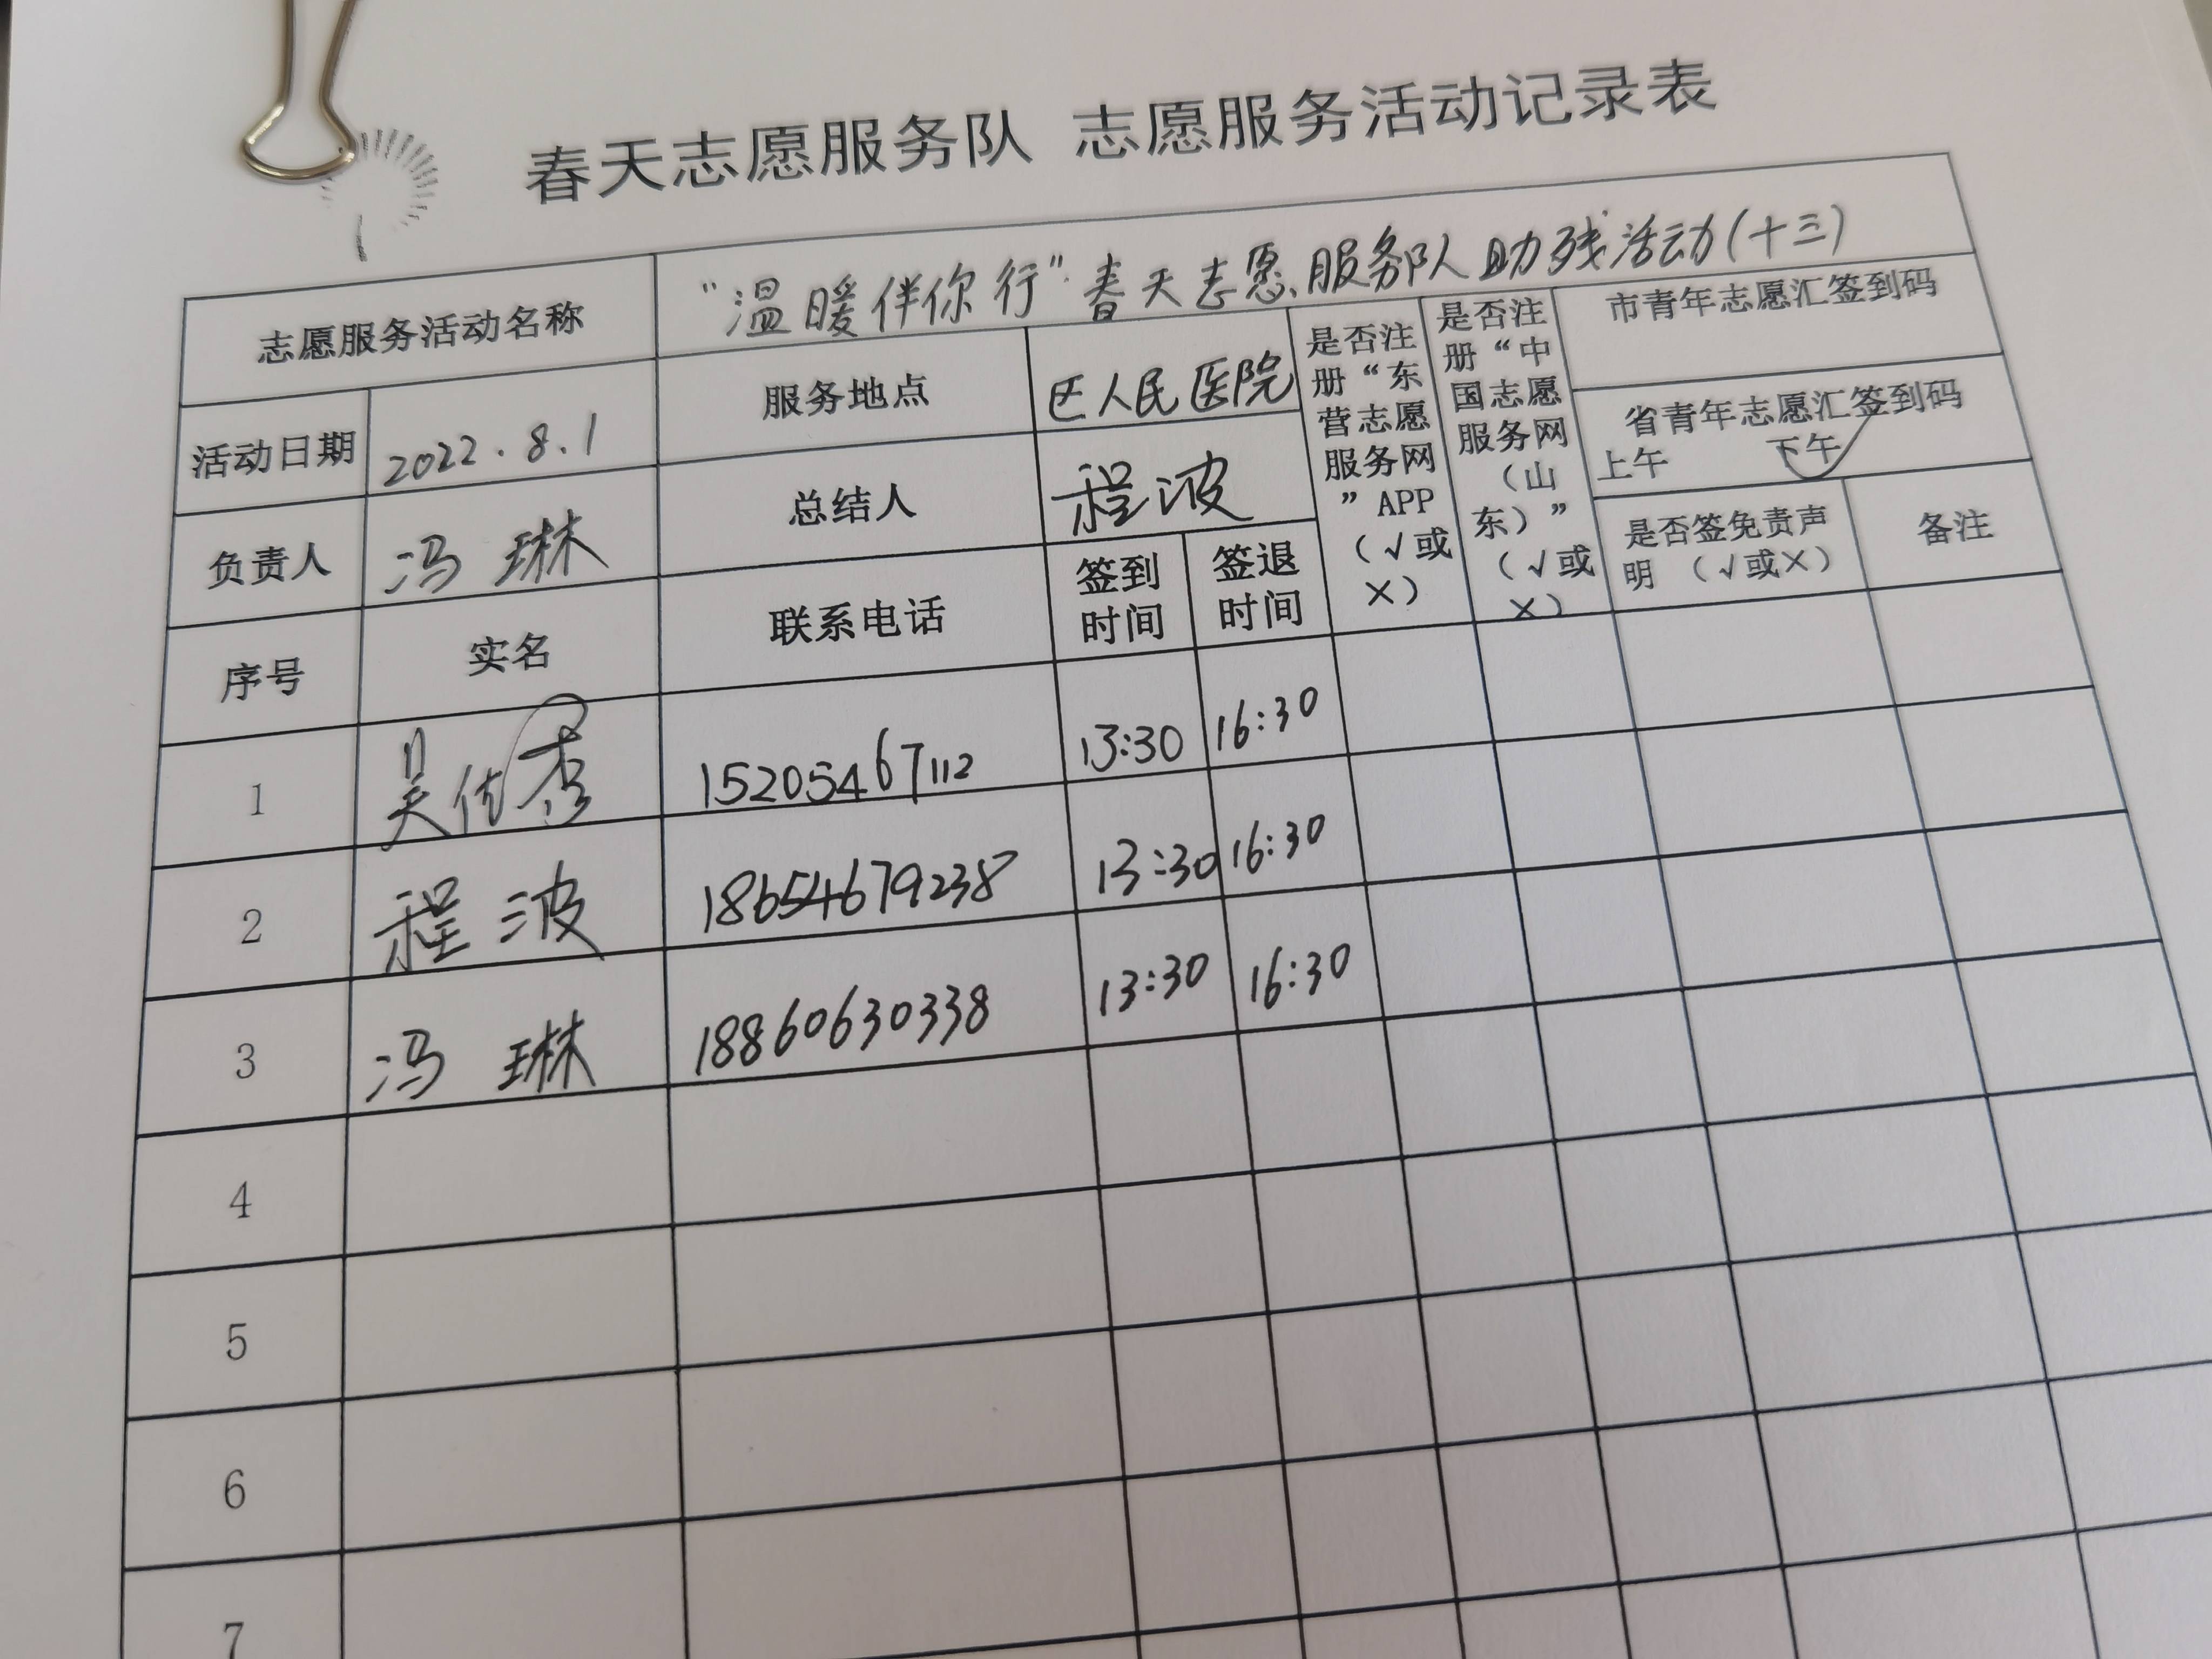 春天志愿服务队 志愿服务活动记录表
志愿服务活动名称 "温暖伴你行"春天志愿服务队助残活动(十三)
活动日期 2022.8.1 服务地点 区人民医院
负责人 冯琳 总结人 程波
是否注
册“东
营志愿
服务网
”APP
（√或
×）
是否注
册“中
国志愿
服务网
（山
东）”
（√或
×）
市青年志愿汇签到码
省青年志愿汇签到码
上午 下午√
是否签免责声
明 （√或×）
备注
序号 实名 联系电话
签到
时间
签退
时间
1 吴 秀 15205467112 13:30 16:30
2 程波 18654679238 13:30 16:30
3 冯琳 18860630338 13:30 16:30
4
5
6
7